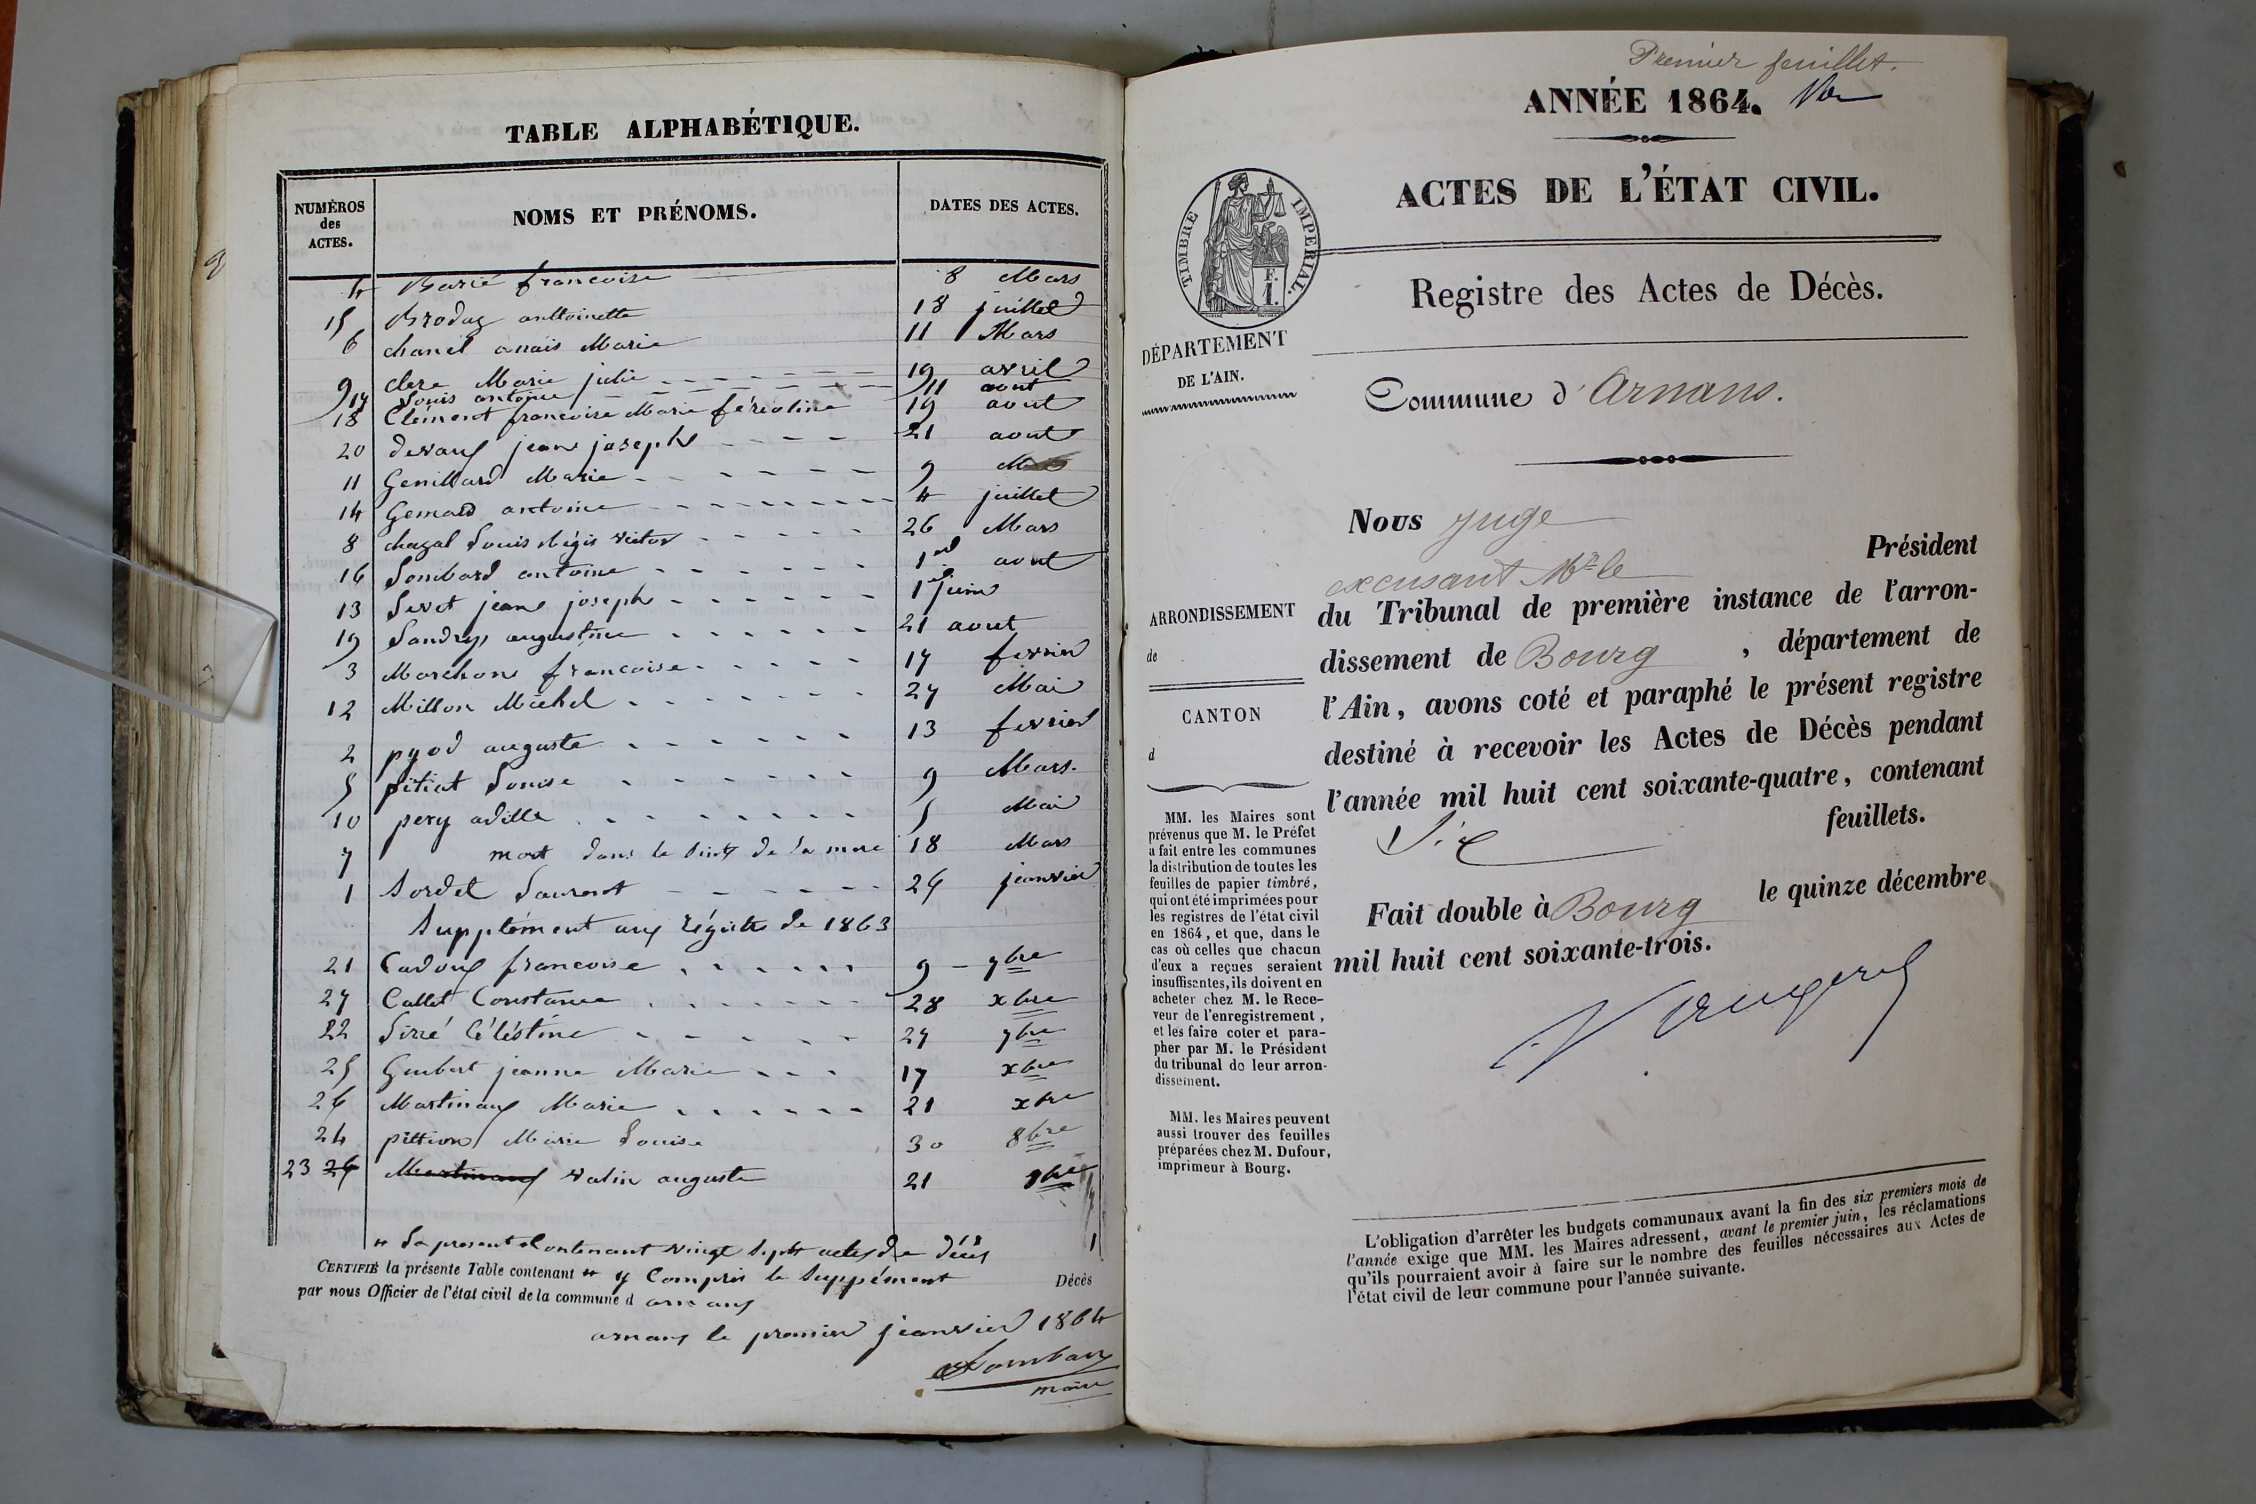 TABLE ALPHABÉTIQUE.
NUMÉROS des ACTES.
NOMS ET PRÉNOMS.
DATES DES ACTES.
4 francoise 8 Mars
15 anttoinette 18 juillet
6 chanel anaïs Marie 11 Mars
9 clere Marie julie 19 avril
17 Louis antoine 11 aout
18 Clément francoise Marie 19 aout
20 devaux jean joseph 21 aout
11 Genillard Marie 9
14 antoine 4 juillet
8 chazal Louis Régis victor 26 Mars
16 Lombard antoine 1er aout
13 jean joseph 1er juin
19 augustine 21 aout
3 francoise 17 fevrier
12 Millon Michel 27 Mai
2 pyod auguste 13 fevrier
5 pitiot Louise 9 Mars.
10 5 Mai
7 mort dans le de la mere 18 Mars
1 Sordet Laurent 26 janvier
Supplément aux régistre de 1863
21 francoise 9 - 7bre
27 Collet Constance 28 xbre
22 Céléstine 27 7bre
25 jeanne Marie 17 xbre
26 Martinaux Marie 21 xbre
24 pittion Marie Louise 30 8bre
23 auguste 21
" La presente Contenant vingt Septt actes de décès
CERTIFIÉ la présente Table contenant " y Compris le Suppément Décès
par nous Officier de l'état civil de la commune d arnans
arnans le premier jeanvier 1864
maire
Premier feuillet.
ANNÉE 1864.
ACTES DE L'ÉTAT CIVIL.
TIMBRE IMPÉRIAL.
Registre des Actes de Décès.
DÉPARTEMENT
DE L'AIN.
Commune d'Arnans.
ARRONDISSEMENT
de
CANTON
d
MM. les Maires sont
prévenus que M. le Préfet
a fait entre les communes
la distribution de toutes les
feuilles de papier timbré,
qui ont été imprimées pour
les registres de l'état civil
en 1864, et que, dans le
cas où celles que chacun
d'eux a reçues seraient
insuffisantes, ils doivent en
acheter chez M. le Rece-
veur de l'enregistrement,
et les faire coter et para-
pher par M. le Président
du tribunal de leur arron-
dissement.
MM. les Maires peuvent
aussi trouver des feuilles
préparées chez M. Dufour,
imprimeur à Bourg.
Nous juge
excusant Mr le Président
du Tribunal de première instance de l'arron-
dissement de Bourg, département de
l'Ain, avons coté et paraphé le présent registre
destiné à recevoir les Actes de Décès pendant
l'année mil huit cent soixante-quatre, contenant
Six feuillets.
Fait double à Bourg le quinze décembre
mil huit cent soixante-trois.
L'obligation d'arrêter les budgets communaux avant la fin des six premiers mois de
l'année exige que MM. les Maires adressent, avant le premier juin, les réclamations
qu'ils pourraient avoir à faire sur le nombre des feuilles nécessaires aux Actes de
l'état civil de leur commune pour l'année suivante.